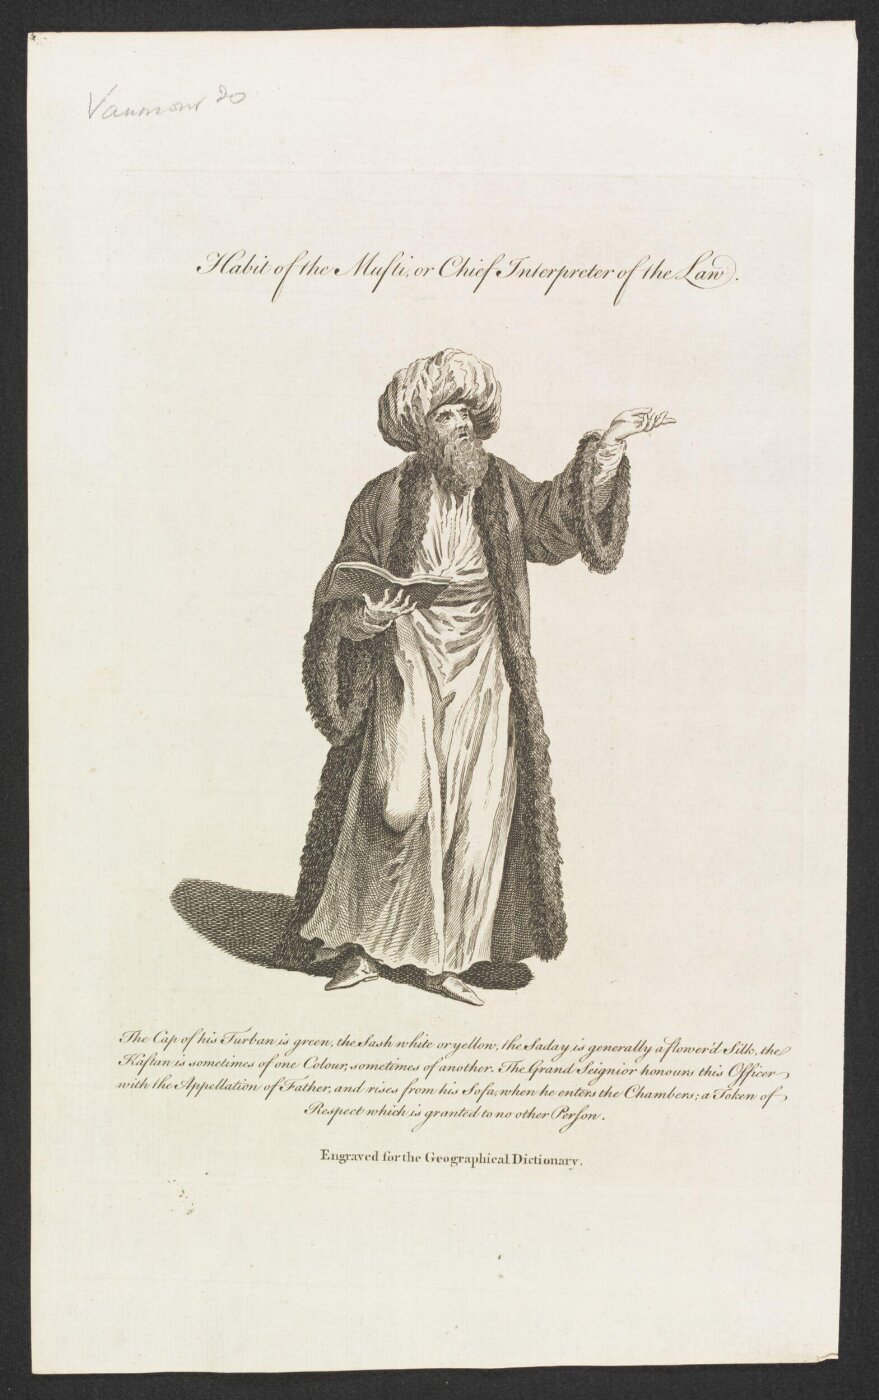 Vanmour 20
Habit of the Mufti, or Chief Interpreter of the Law.
The Cap of his Turban is green, the Sash white or yellow, the Saday is generally a flower'd Silk, the
Kaftan is sometimes of one Colour, sometimes of another. The Grand Seignior honours this Officer
with the Appellation of Father, and rises from his Sofa, when he enters the Chambers; a Token of
Respect which is granted to no other Person.
Engraved for the Geographical Dictionary.